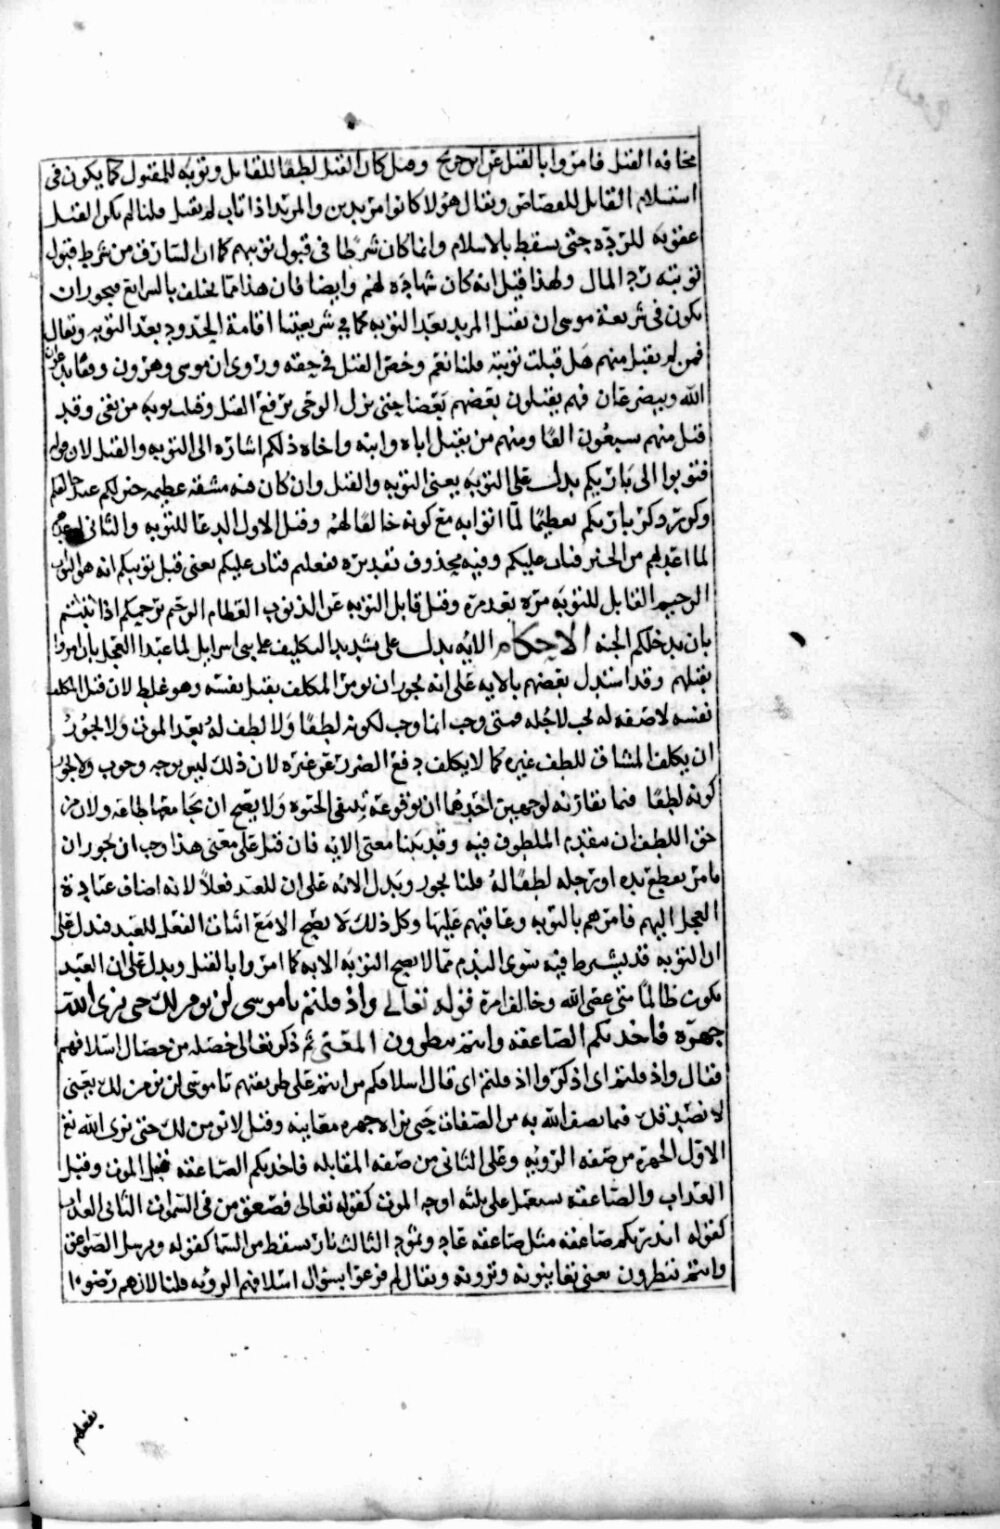 مخافة القتل فامروا بالقتل عن ابن جريج وقيل كان القتل لطفا للقاتل وتوبة للمقتول كما يكون في
استسلام القاتل للقصاص ويقال هؤلا كانوا مرتدين والمرتد اذا تاب لم يقتل قلنا لم يكن القتل
عقوبة للردة حتى يسقط بالاسلام وانما كان شرطا في قبول توبتهم كما ان السارق من شرط قبول
توبته رد المال ولهذا قيل انه كان شهادة لهم وايضا فان هذا مما يختلف بالشرائع فيجوز ان
يكون في شريعة موسى ان يقتل المرتد بعد التوبة كما في شريعتنا اقامة الحدود بعد التوبه ويقال
فمن لم يقتل منهم هل قبلت توبته قلنا نعم وخص القتل في حقه وروى ان موسى وهرون وقفا يدعوان
الله ويتضرعان فهم يقتلون بعضهم بعضا حتى نزل الوحي برفع القتل وقبلت توبة من بقي وقد
قتل منهم سبعون الفا ومنهم من يقتل اباه وابنه واخاه ذلكم اشارة الى التوبه والقتل لان قوله
فتوبوا الى بارئكم يدل على التوبة يعني التوبه والقتل وان كان فيه مشقة عظيمة خير لكم عند خالقكم
وكرر ذكر بارئكم تعظيما لما اتوا به مع كونه خالقا لهم وقيل الاول الدعا للتوبه والثاني
لما اعد لهم من الخير فتاب عليكم وفيه محذوف تقديره ففعلتم فتاب عليكم يعني قبل توبتكم انه هو التواب
الرحيم القابل للتوبة مرة بعد مرة وقيل قابل التوبة عن الذنوب العظام الرحيم يرحمكم اذا تبتم
بان يدخلكم الجنه الاحكام الآية يدل على تشديد التكليف على بني اسرايل لما عبدوا العجل بان امروا
بقتلهم وقد استدل بعضهم بالايه على انه يجوز ان يؤمر المكلف بقتل نفسه وهو غلط لان قتل المكلف
نفسه لا صفة له يجب لاجله فمتى وجب انما وجب لكونه لطفا ولا لطف له بعد الموت ولا يجوز
ان يكلف المشاق للطف غيره كما لا يكلف دفع الضرر عن غيره لان ذلك ليس بوجه وجوب ولا يجوز
كونه لطفا فيما يقارنه لوجهين احدهما ان بوقوعه تنتفي الحيوه ولا يصح ان يجامعها طاعه ولان من
حق اللطف ان يتقدم الملطوف فيه وقد بينا معنى الآيه فان قيل على معنى هذا وجب ان يجوز ان
يامر بقطع يده او رجله لطفا له قلنا يجوز ويدل الآيه على ان للعبد فعلا لانه اضاف عبادة
العجل اليهم فامرهم بالتوبه وعاقبهم عليها وكل ذلك لا يصح الا مع اثبات الفعل للعبد فيدل على
ان التوبه قد يشترط فيه سوى الندم مما لا يصح التوبه الا به كما امروا بالقتل ويدل على ان العبد
يكون ظالما متى عصى الله وخالف امره قوله تعالى واذ قلتم يا موسى لن نؤمن لك حتى نرى الله
جهرة فاخذتكم الصاعقه وانتم تنظرون المعنى ثم ذكر تعالى خصله من خصال اسلافهم
فقال واذ قلتم اي اذكروا اذ قلتم اي قال اسلافكم من انتم على طريقتهم يا موسى لن نؤمن لك يعني
لا نصدقك فيما تصف الله به من الصفات حتى نراه جهرة معاينه وقيل لا نؤمن لك حتى نرى الله فعلى
الاول الجهرة من صفه الرؤيه وعلى الثاني من صفه المقابله فاخذتكم الصاعقه قيل الموت وقيل
العذاب والصاعقه يستعمل على ثلثة اوجه الموت كقوله تعالى فصعق من في السموات الثاني العذاب
كقوله انذرتكم صاعقة مثل صاعقة عاد وثمود الثالث نار يسقط من السما كقوله ويرسل الصواعق
وانتم تنظرون يعني تعاينونه وترونه ويقال لم قرعوا بسؤال اسلافهم الرؤيه قلنا لانهم رضوا
بفعلهم